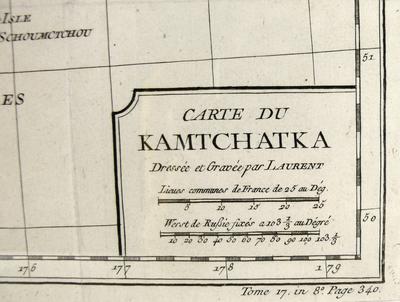 ISLE
SCHOUMCTCHOU
ES
51
CARTE DU
KAMTCHATKA
Dressée et Gravée par LAURENT
Lieues communes de France de 25 au Dég.
5 10 15 20 25
Werst de Russie fixés a 103 1/3 au Dégré
10 20 30 40 50 60 70 80 90 100 103 1/3
50
176 177 178 179
Tome 17. in 8º. Page 340.